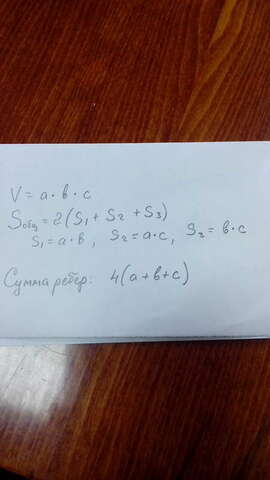 V = a · b · c
Sобщ = 2(S1 + S2 + S3)
S1 = a · b, S2 = a · c, S2 = b · c
Сумма рёбер: 4(a + b + c)